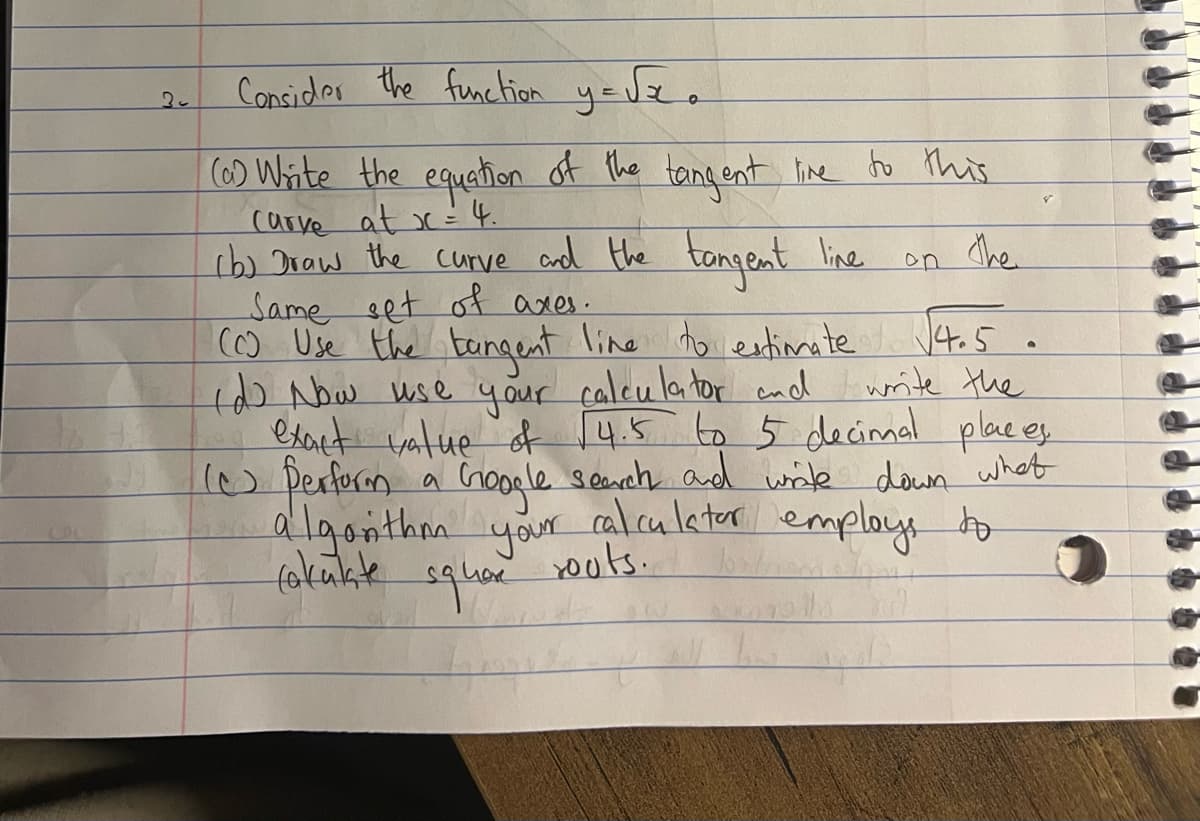 3. Consider the function y = √x.
(a) Write the equation of the tangent line to this
curve at x = 4.
(b) Draw the curve and the tangent line on the
Same set of axes.
(c) Use the tangent line to estimate √4.5.
(d) Now use your calculator and write the
exact value of √4.5 to 5 decimal places.
(e) Perform a Google search and write down what
algorithm your calculator employs to
calculate square roots.